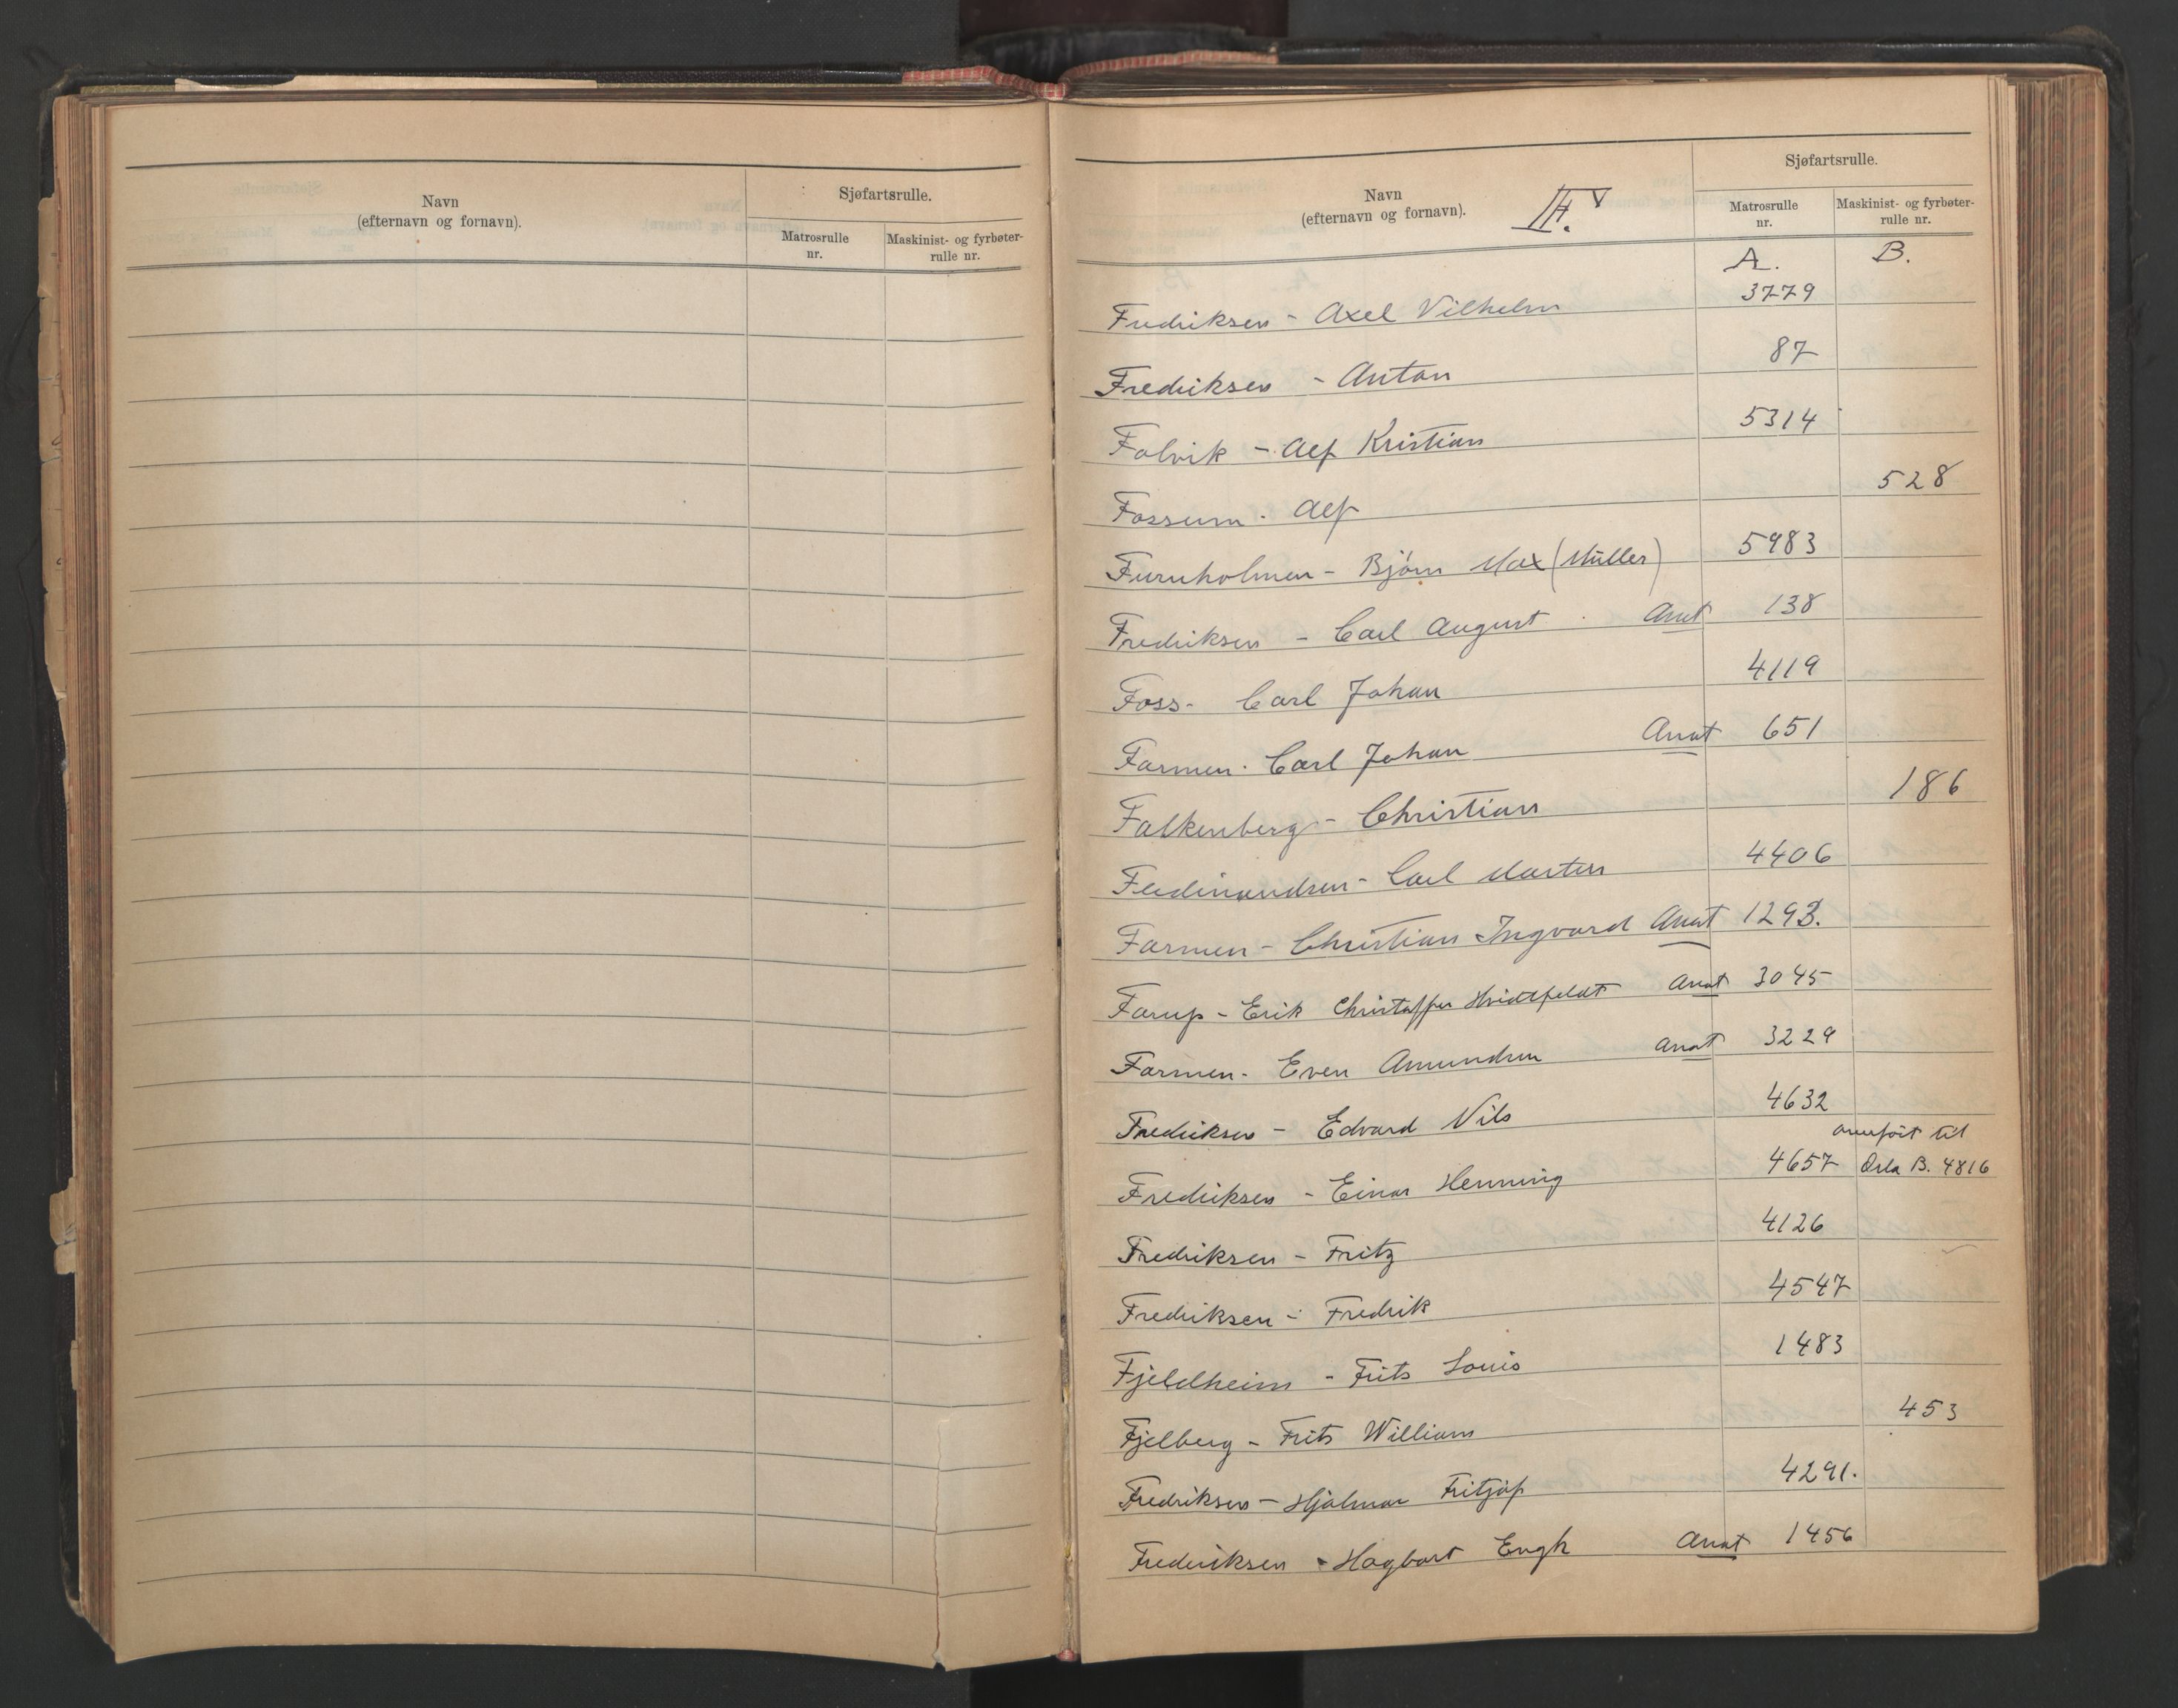 Navn
(efternavn og fornavn).
Sjøfartsrulle.
Matrosrulle
nr.
Maskinist- og fyrbøter-
rulle nr.
Navn
(efternavn og fornavn).
Sjøfartsrulle.
Matrosrulle
nr.
Maskinist- og fyrbøter-
rulle nr.
A. B.
Fredriksen - Axel Vilhelm 3779
Fredriksen - Anton 87
Folvik - Alf Kristian 5314
Fossum - Alf 528
Furuholmen - Bjørn Max (Müller) 5983
Fredriksen - Carl August Anat 138
Foss - Carl Johan 4119
Farmen - Carl Johan Anat 651
Falkenberg - Christian 186
Ferdinandsen - Carl Marten 4406
Farmen - Christian Ingvard Anat 1293.
Farup - Erik Christoffer Hvidtfeldt Anat 3045
Farmen - Even Amundsen Anat 3229
Fredriksen - Edvard Nils 4632
overført til
Fredriksen - Einar Henning 4657 Oslo B. 4816
Fredriksen - Fritz 4126
Fredriksen - Fredrik 4547
Fjeldheim - Frits Louis 1483
Fjelberg - Frits William 453
Fredriksen - Hjalmar Fritjof 4291.
Frederiksen - Hagbart Engh Anat 1456